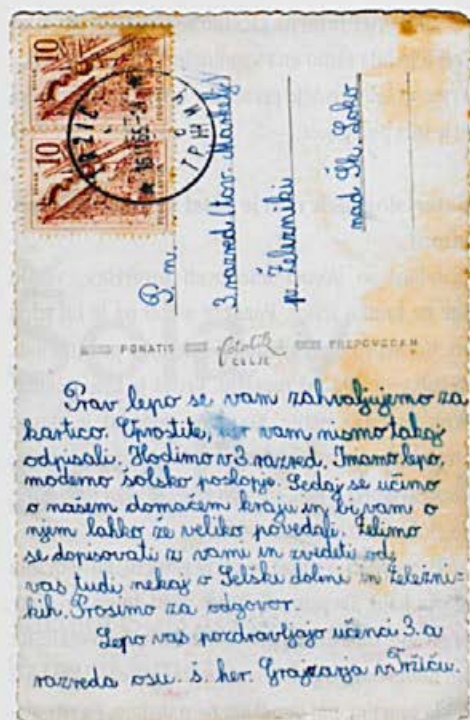 10
10
TRŽIČ
ТРЖИЧ
P. n.
3. razred (tov. Markelj)
p. Železniki
nad Šk. Loko
PONATIS fotolik CELJE PREPOVEDAN
Prav lepo se vam zahvaljujemo za
kartico. Oprostite, ker vam nismo takoj
odpisali. Hodimo v 3. razred. Imamo lepo,
moderno šolsko poslopje. Sedaj se učimo
o našem domačem kraju in bi vam o
njem lahko že veliko povedali. Želimo
se dopisovati z vami in zvedeti od
vas tudi nekaj o Selški dolini in Železni-
kih. Prosimo za odgovor.
Lepo vas pozdravljajo učenci 3. a
razreda osn. š. her. Grajzarja v Tržiču.